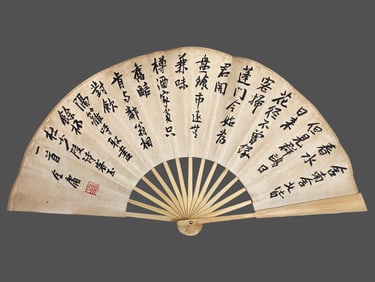 舍南舍北皆
春水
但見群鷗日
日來
花徑不曾緣
客掃
蓬門今始為
君開
盤飧市遠無
兼味
樽酒家貧只
舊醅
肯與鄰翁相
對飲
隔籬呼取盡
餘杯
杜少陵詩客至
一首